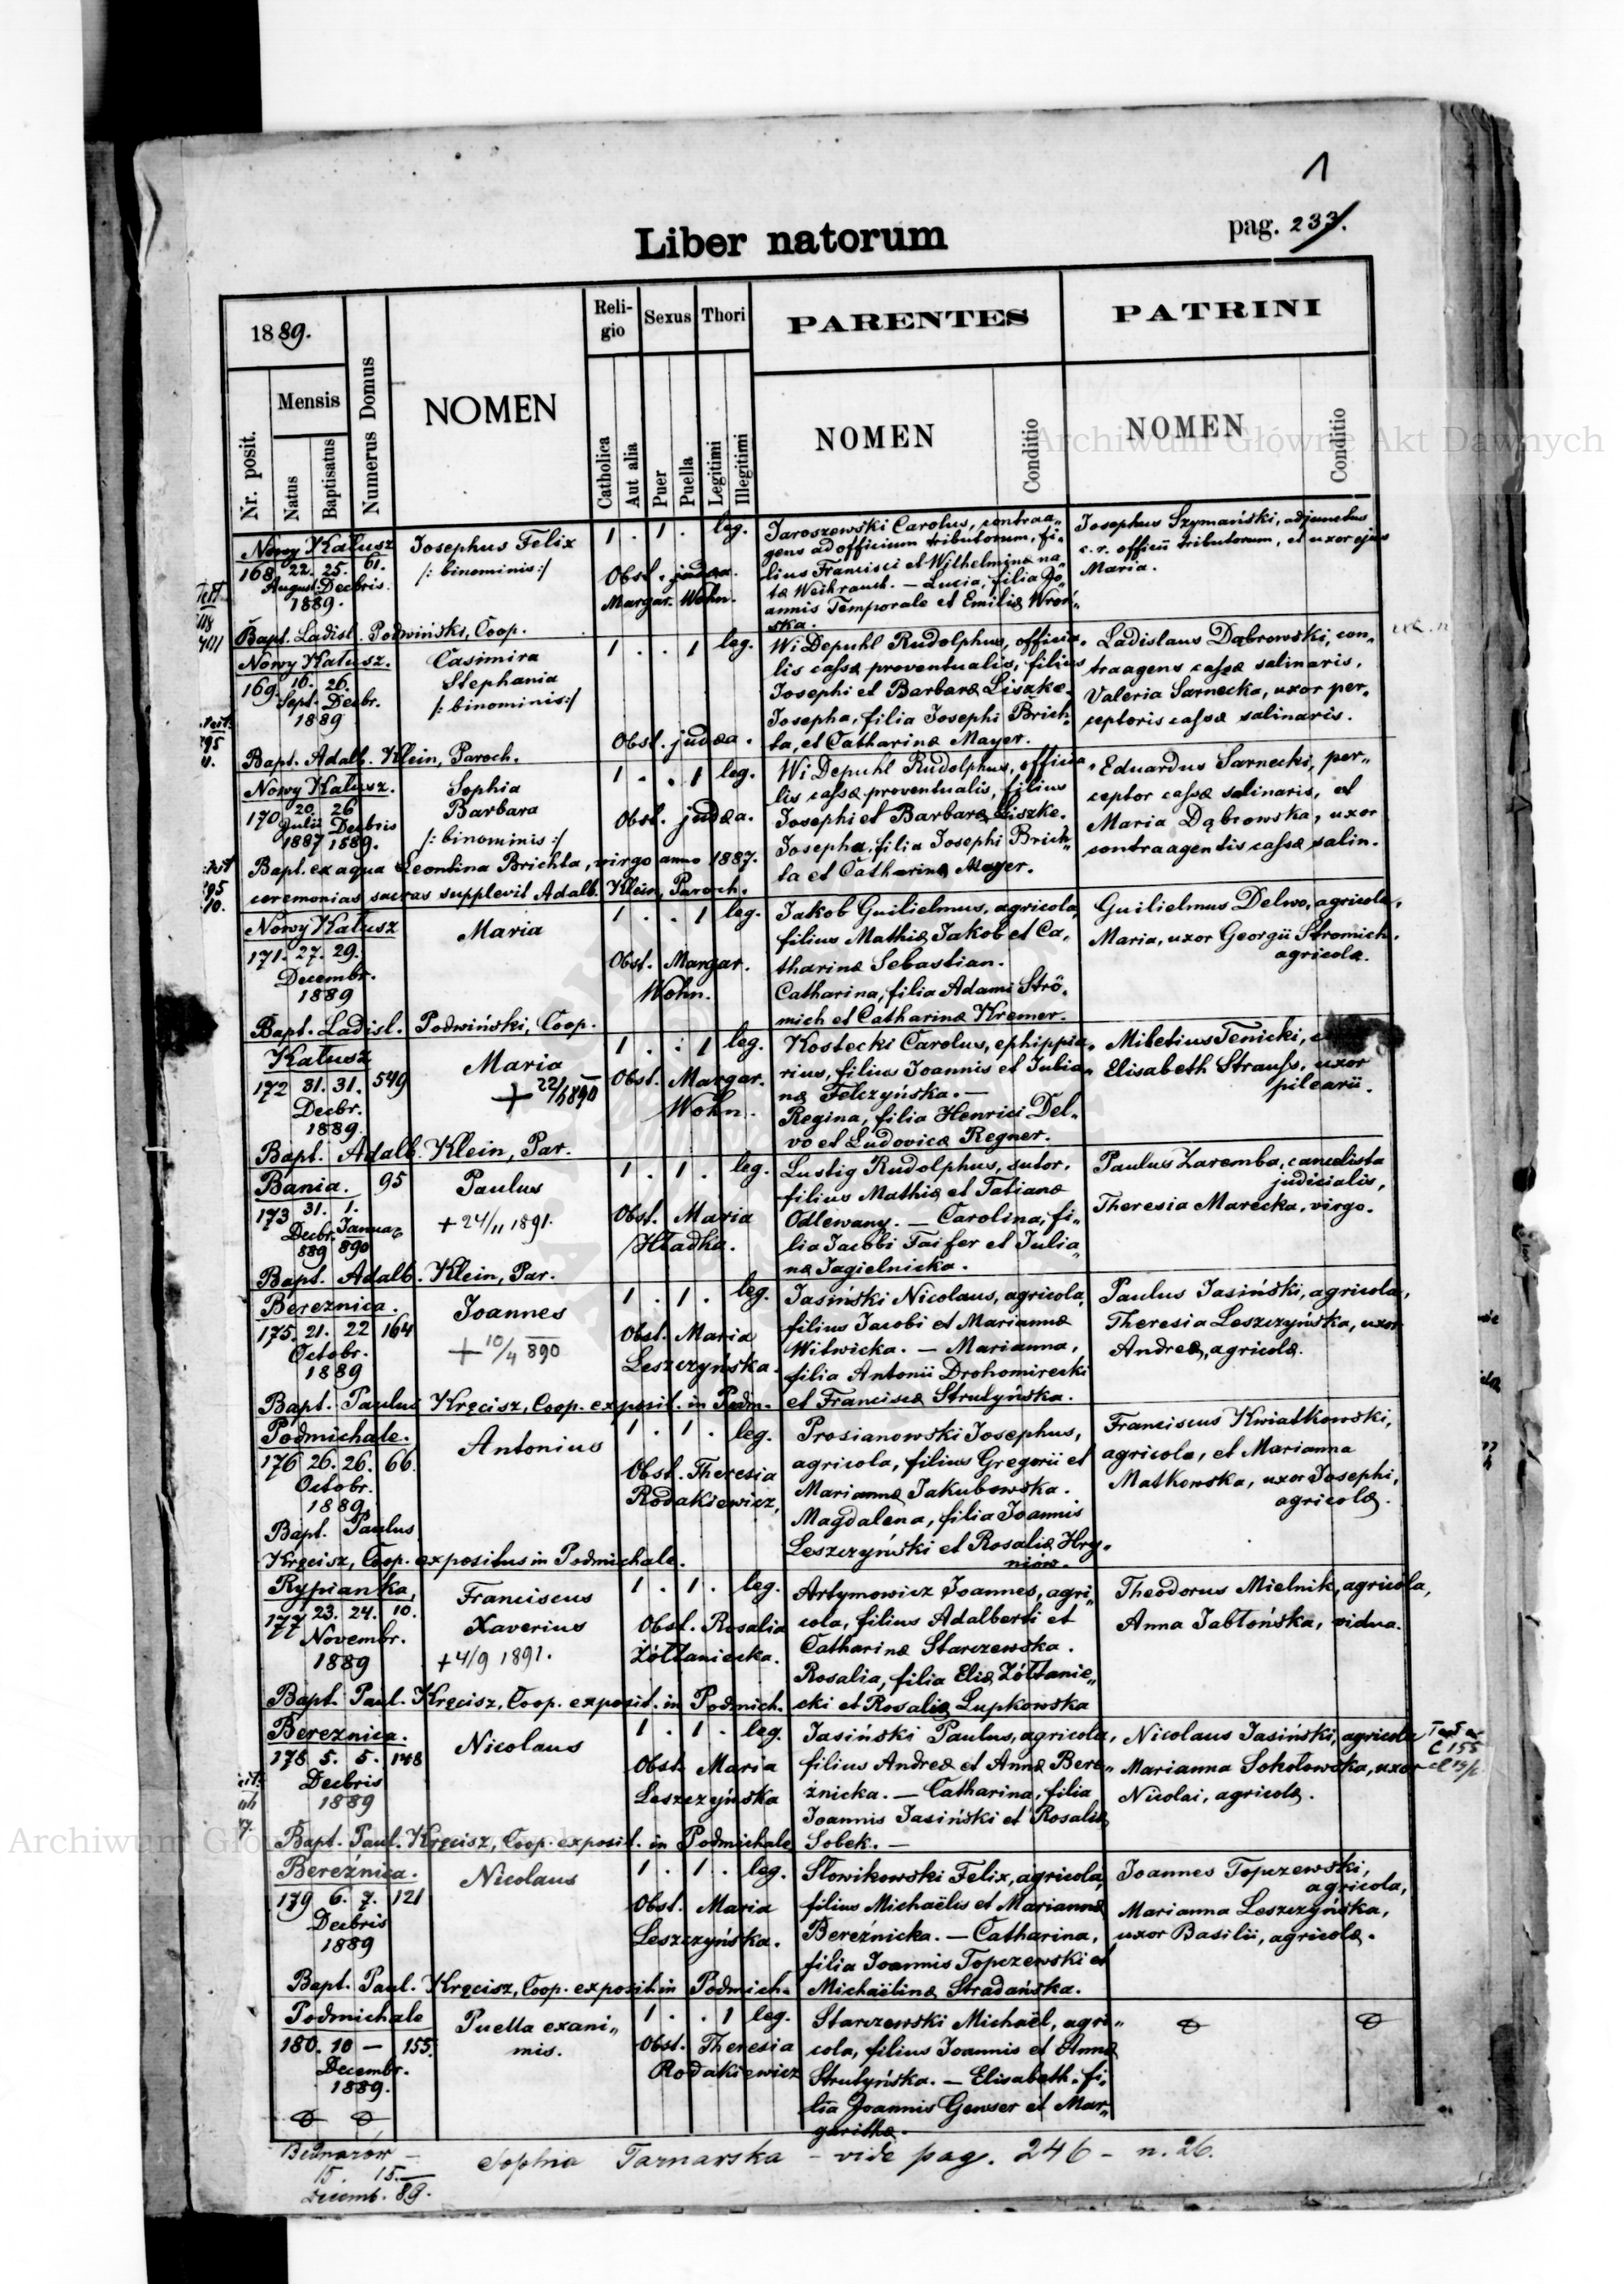 1
pag. 233.
Liber natorum
1889.
Nr. posit.
Mensis
Natus
Baptisatus
Numerus Domus
NOMEN
Religio
Catholica
Aut alia
Sexus
Puer
Puella
Thori
Legitimi
Illegitimi
PARENTES
NOMEN
Conditio
PATRINI
NOMEN
Conditio
Archiwum Główne Akt Dawnych
Nowy Kałusz
168 22. 25. 61.
August. Decbris
1889.
Josephus Felix
/: binominis :/
1 . 1 . leg.
Obst. judæa.
Margar. Wohn.
Jaroszewski Carolus, contraa„
gens ad officium tributorum, fi„
lius Francisci et Wilhelminæ na„
tæ Weihrauch. — Lucia, filia Jo„
annis Temporale et Emiliæ Wroń„
ska.
Josephus Szymański, adjunctus
c. r. officii tributorum, et uxor ejus
Maria.
Bapt. Ladisl. Podwiński, Coop.
Nowy Kałusz.
169. 16. 26.
Sept. Decbr.
1889
Casimira
Stephania
/: binominis :/
1 . . 1 leg.
Obst. judæa.
Wi Depuhl Rudolphus, officia„
lis cassæ proventualis, filius
Josephi et Barbaræ Liszke.
Josepha, filia Josephi Brich„
ta, et Catharinæ Mayer.
Ladislaus Dąbrowski, con„
traagens cassæ salinaris,
Valeria Sarnecka, uxor per„
ceptoris cassæ salinaris.
Bapt. Adalb. Klein, Paroch.
Nowy Kałusz.
170 20. 26
Julii Decbris
1887 1889.
Sophia
Barbara
/: binominis :/
1 . . 1 leg.
Obst. judæa.
Wi Depuhl Rudolphus, officia„
lis cassæ proventualis, filius
Josephi et Barbaræ Liszke.
Josepha, filia Josephi Brich„
ta et Catharinæ Mayer.
Eduardus Sarnecki, per„
ceptor cassæ salinaris, et
Maria Dąbrowska, uxor
contraagentis cassæ salin.
Bapt. ex aqua Leontina Brichta, virgo anno 1887.
ceremonias sacras supplevit Adalb. Klein, Paroch.
Nowy Kałusz
171. 27. 29.
Decembr.
1889
Maria
1 . . 1 leg.
Obst. Margar.
Wohn.
Jakob Guilielmus, agricola,
filius Mathiæ Jakob et Ca„
tharinæ Sebastian.
Catharina, filia Adami Strö„
mich et Catharinæ Kremer.
Guilielmus Delwo, agricola,
Maria, uxor Georgii Stromich,
agricolæ.
Bapt. Ladisl. Podwiński, Coop.
Kałusz
172 31. 31. 549
Decbr.
1889.
Maria
1 . . 1 leg.
Obst. Margar.
Wohn.
Kostecki Carolus, ephippia„
rius, filius Joannis et Julia„
næ Felczyńska. —
Regina, filia Henrici Del„
vo et Ludovicæ Regner.
Miletius Tenicki,
Elisabeth Strauss, uxor
pilearii.
Bapt. Adalb. Klein, Par.
Bania. 95
173 31. 1.
Decbr. Januar
889 890
Paulus
+ 24/11 1891.
1 . 1 . leg.
Obst. Maria
Hładka.
Lustig Rudolphus, sutor,
filius Mathiæ et Tatianæ
Odlewany. — Carolina, fi„
lia Jacobi Faifer et Julia„
næ Jagielnicka.
Paulus Zaremba, cancelista
judicialis,
Theresia Marecka, virgo.
Bapt. Adalb. Klein, Par.
Bereznica.
175. 21. 22 164
Octobr.
1889
Joannes
+ 10/4 890
1 . 1 . leg.
Obst. Maria
Leszczyńska.
Jasiński Nicolaus, agricola,
filius Jacobi et Mariannæ
Witwicka. — Marianna,
filia Antonii Drohomirecki
et Franciscæ Strutyńska.
Paulus Jasiński, agricola,
Theresia Leszczyńska, uxor
Andreæ, agricolæ.
Bapt. Paulus Kręcisz, Coop. exposit. in Podm.
Podmichale.
176 26. 26. 66.
Octobr.
1889.
Antonius
1 . 1 . leg.
Obst. Theresia
Rodakiewicz,
Prosianowski Josephus,
agricola, filius Gregorii et
Mariannæ Jakubowska.
Magdalena, filia Joannis
Leszczyński et Rosaliæ Hry„
niów.
Franciscus Kwiatkowski,
agricola, et Marianna
Matkowska, uxor Josephi,
agricolæ.
Bapt. Paulus
Kręcisz, Coop. expositus in Podmichale.
Rypianka,
177 23. 24. 10.
Novembr.
1889
Franciscus
Xaverius
+ 4/9 1891.
1 . 1 . leg.
Obst. Rosalia
Żółtaniecka.
Artymowicz Joannes, agri„
cola, filius Adalberti et
Catharinæ Starczewska.
Rosalia, filia Eliæ Żółtanie„
cki et Rosaliæ Lupkowska
Theodorus Mielnik, agricola,
Anna Jabłońska, vidua.
Bapt. Paul. Kręcisz, Coop. exposit. in Podmich.
Bereznica.
178 5. 5. 148
Decbris
1889
Nicolaus
1 . 1 . leg.
Obst. Maria
Leszczyńska
Jasiński Paulus, agricola,
filius Andreæ et Annæ Bere„
źnicka. — Catharina, filia
Joannis Jasiński et Rosaliæ
Sobek. —
Nicolaus Jasiński, agricola
Marianna Sokołowska, uxor
Nicolai, agricolæ.
Bapt. Paul. Kręcisz, Coop. exposit. in Podmichale
Bereźnica.
179 6. 7. 121
Decbris
1889
Nicolaus
1 . 1 . leg.
Obst. Maria
Leszczyńska.
Slowikowski Felix, agricola,
filius Michaëlis et Mariannæ
Bereźnicka. — Catharina,
filia Joannis Topczewski et
Michaëlinæ Stradańska.
Joannes Topczewski,
agricola,
Marianna Leszczyńska,
uxor Basilii, agricolæ.
Bapt. Paul. Kręcisz, Coop. exposit in Podmich.
Podmichale
180. 10 — 155.
Decembr.
1889.
Puella exani„
mis.
1 . . 1 leg.
Obst. Theresia
Rodakiewicz
Starczewski Michaël, agri„
cola, filius Joannis et Annæ
Strutyńska. — Elisabeth, fi„
lia Joannis Genser et Mar„
garithæ.
Bednarów —
15. 15.
Decemb. 89.
Sophia Tarnarska — vide pag. 246 — n. 26.